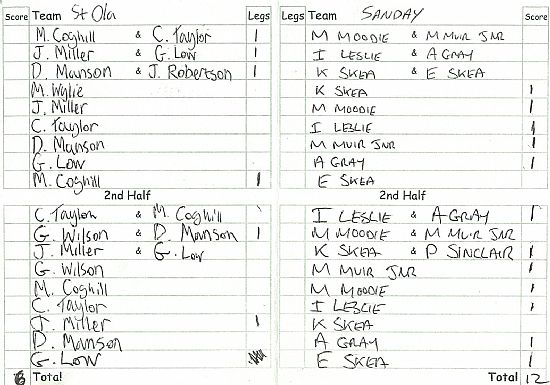 Score Team St Ola Legs Legs Team SANDAY Score
M. Coghill & C. Taylor 1 M MOODIE & M MUIR JNR
J. Miller & G. Low 1 I LESLIE & A GRAY
D. Manson & J. Robertson 1 K SKEA & E SKEA
M. Wylie K SKEA 1
J. Miller M MOODIE 1
C. Taylor I LESLIE 1
D. Manson M MUIR JNR 1
G. Low A GRAY 1
M. Coghill 1 E SKEA
2nd Half 2nd Half
C. Taylor & M. Coghill I LESLIE & A GRAY 1
G. Wilson & D. Manson 1 M MOODIE & M MUIR JNR
J. Miller & G. Low K SKEA & P SINCLAIR 1
G. Wilson M MUIR JNR 1
M. Coghill M MOODIE 1
C. Taylor I LESLIE 1
J. Miller 1 K SKEA
D. Manson A GRAY 1
G. Low E SKEA 1
6 Total Total 12